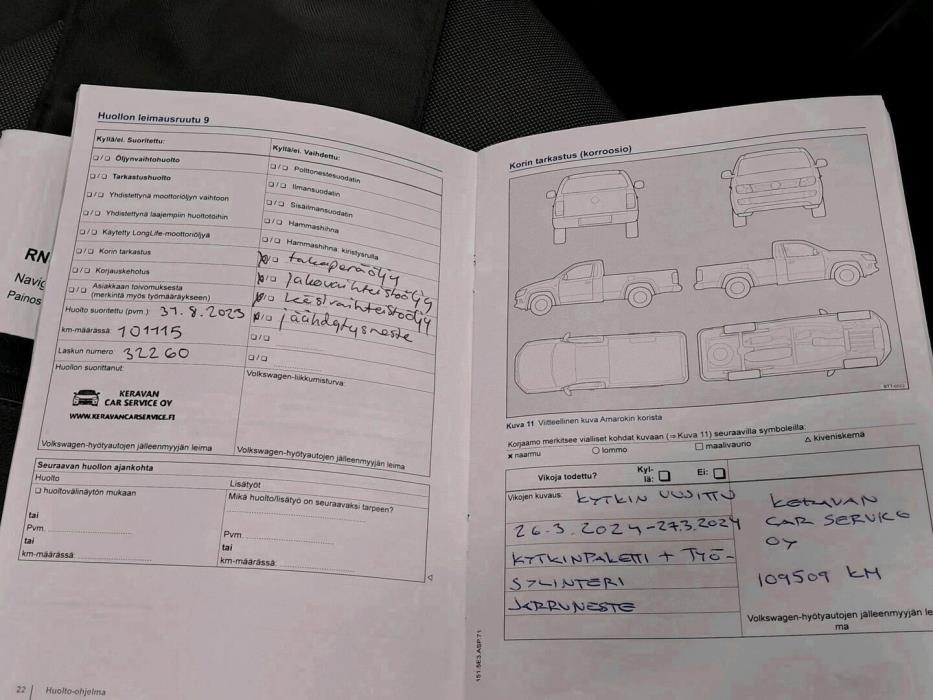 RN
Navig
Painos
Huollon leimausruutu 9
Kyllä/ei. Suoritettu:
❑ / ❑ Öljynvaihtohuolto
❑ / ❑ Tarkastushuolto
❑ / ❑ Yhdistettynä moottoriöljyn vaihtoon
❑ / ❑ Yhdistettynä laajempiin huoltotöihin
❑ / ❑ Käytetty LongLife-moottoriöljyä
❑ / ❑ Korin tarkastus
❑ / ❑ Korjauskehotus
❑ / ❑ Asiakkaan toivomuksesta
(merkintä myös työmääräykseen)
Huolto suoritettu (pvm.): 31.8.2023
km-määrässä: 101115
Laskun numero: 32260
Huollon suorittanut:
KERAVAN
CAR SERVICE OY
WWW.KERAVANCARSERVICE.FI
Volkswagen-hyötyautojen jälleenmyyjän leima
Kyllä/ei. Vaihdettu:
❑ / ❑ Polttonestesuodatin
❑ / ❑ Ilmansuodatin
❑ / ❑ Sisäilmansuodatin
❑ / ❑ Hammashihna
❑ / ❑ Hammashihna: kiristysrulla
takaperäöljy
jakovaihteistoöljy
käsivaihteistoöljy
jäähdytysneste
❑ / ❑
❑ / ❑
Volkswagen-liikkumisturva:
Volkswagen-hyötyautojen jälleenmyyjän leima
Seuraavan huollon ajankohta
Huolto
❑ huoltovälinäytön mukaan
tai
Pvm.
tai
km-määrässä:
Lisätyöt
Mikä huolto/lisätyö on seuraavaksi tarpeen?
Pvm.
tai
km-määrässä:
22 Huolto-ohjelma
Korin tarkastus (korroosio)
Kuva 11 Viitteellinen kuva Amarokin korista
Korjaamo merkitsee vialliset kohdat kuvaan (⇒ Kuva 11) seuraavilla symboleilla:
× naarmu ○ lommo □ maalivaurio △ kiveniskemä
Vikoja todettu? Kyl-lä: ❑ Ei: ❑
Vikojen kuvaus: KYTKIN UUSITTU
26.3.2024-27.3.2024
KYTKINPAKETTI + TYÖ-
SYLINTERI
JARRUNESTE
KERAVAN
CAR SERVICE
OY
109509 KM
Volkswagen-hyötyautojen jälleenmyyjän lei
ma
151.5E3.ASP.71